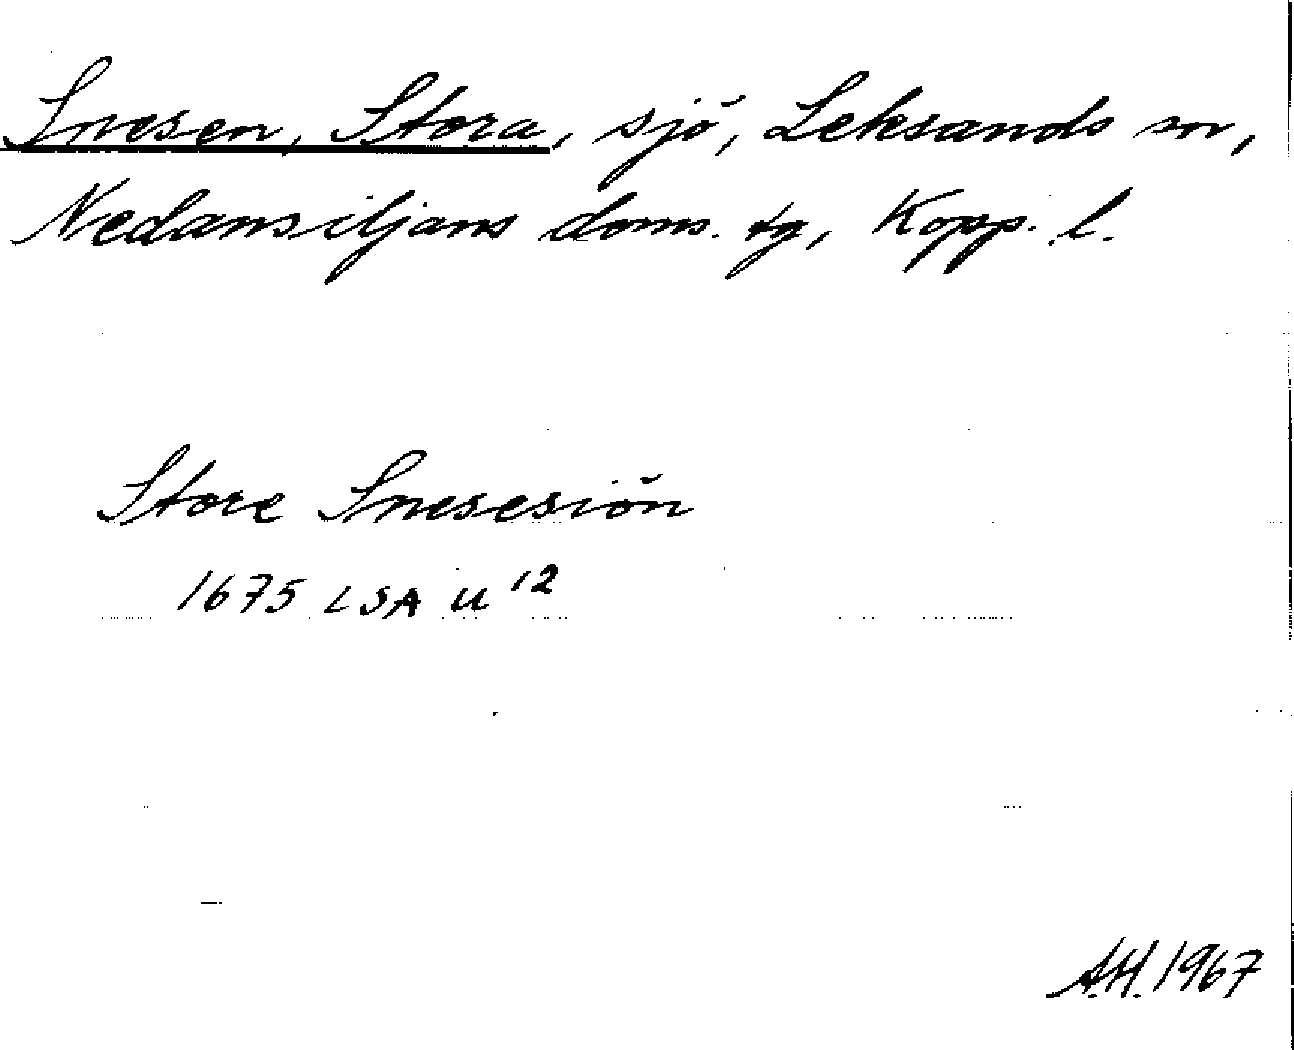 Snesen, Stora, sjö, Leksands sn,
Nedansiljans doms. tg, Kopp. l.
Store Snesesiön
1675 LSA U 12
A.H. 1967